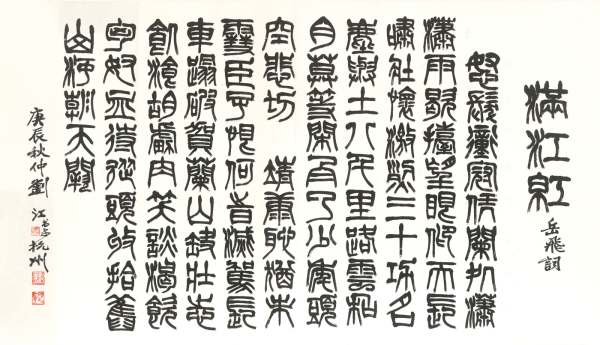 滿江紅
岳飛詞
怒髮衝冠憑闌処瀟
瀟雨歇擡望眼仰天長
嘯壯懷激烈三十功名
塵與土八千里路雲和
月莫等閒白了少年頭
空悲切 靖康恥猶未
雪臣子恨何旹滅駕長
車踏破賀蘭山缺壯志
飢餐胡虜肉笑談渴飲
匈奴血待從頭收拾舊
山河朝天闕
庚辰秋仲劉江書於杭州